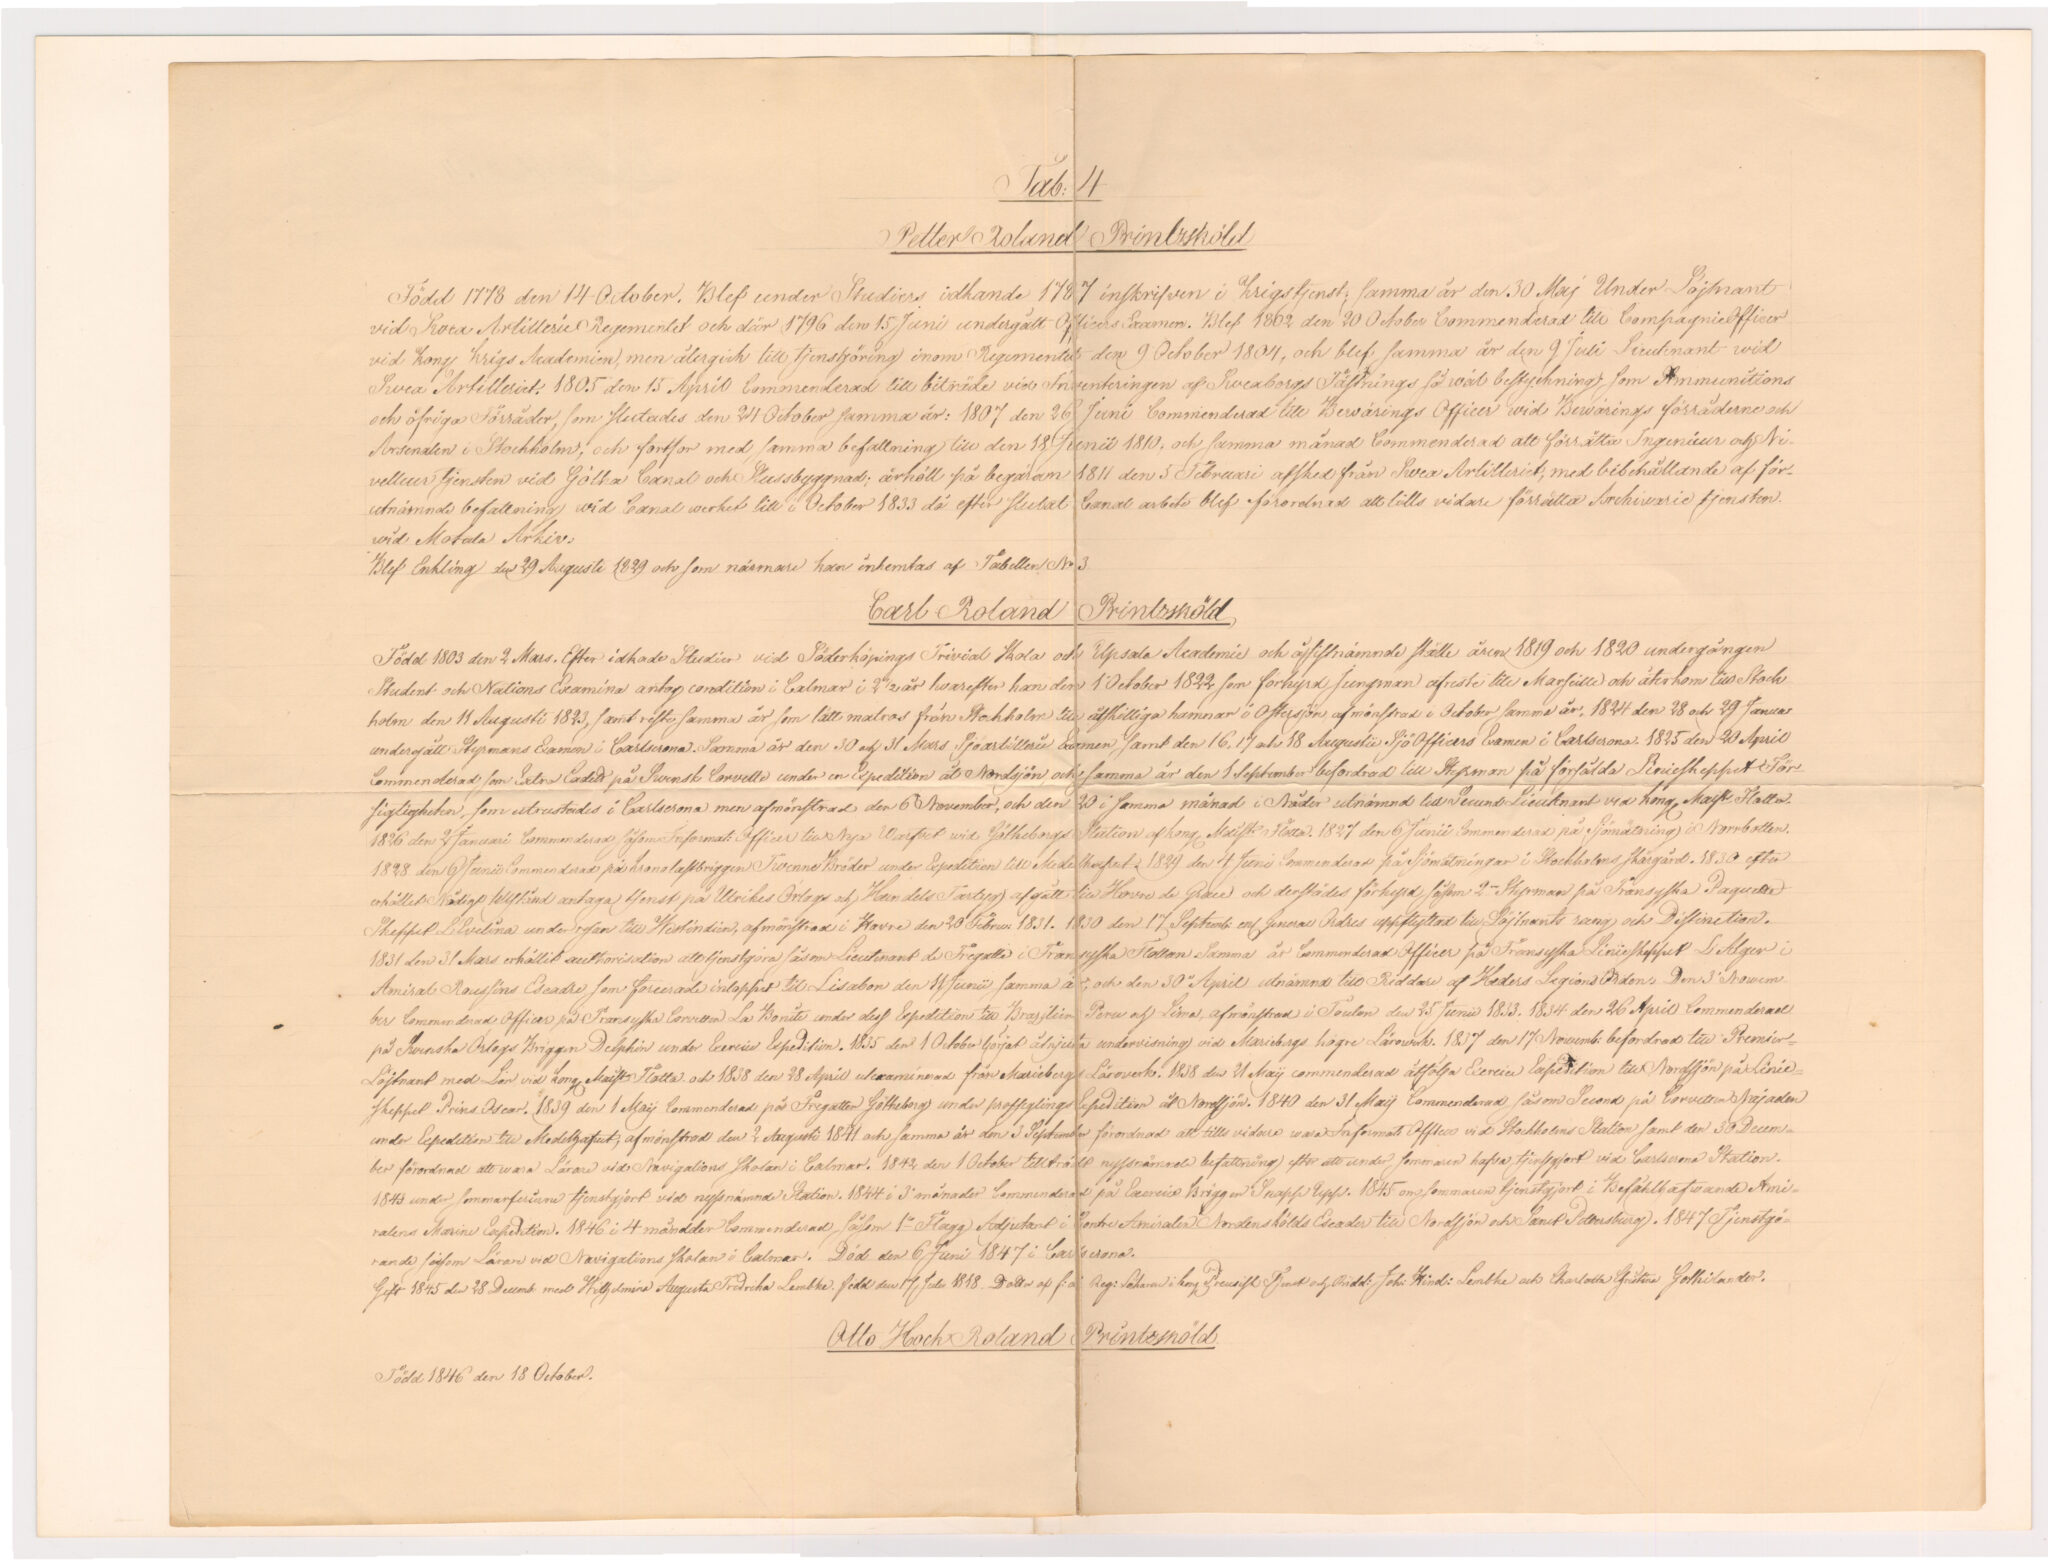 Tab: 4
Petter Roland Printzsköld
Född 1778 den 14 October. Blef under Studiers idkande 1787 inskrifven i Krigstjenst; samma år den 30 Maj Under Löjtnant
vid Svea Artillerie Regementet och där 1796 den 15 Juni undergått Officers Examen. Blef 1802 den 20 October Commenderad till Compagnie Officer
vid Kong Krigs Academien, men återgick till tjenstgöring inom Regementet den 9 October 1804, och blef samma år den 9 Juli Lieutinant wid
Svea Artilleriet. 1805 den 15 April Commenderad till biträde vid Inventeringen af Sveaborgs Fästnings så wäl bestyckning, som Ammunitions
och öfriga Förråder, som slutades den 24 October samma år: 1807 den 26 Juni Commenderad till Bewärings Officer wid Bewärings förråderne och
Arsenalen i Stockholm, och fortfor med samma befattning till den 18 Junii 1810, och samma månad Commenderad att förrätta Ingenieur och Ni-
velleur tjensten vid Götha Canal och Slussbyggnad; ärhöll på begäran 1811 den 5 Februari afsked från Svea Artilleriet, med bibehållande af för-
utnämnde befattning wid Canal werket till i October 1833 då efter slutat Canal arbete blef förordnad att tills vidare förrätta Archivarie tjensten
wid Motala Arkiv.
Blef Enkling den 29 Augusti 1829 och som närmare kan inhemtas af Tabellen No 3
Carl Roland Printzsköld
Född 1803 den 2 Mars. Efter idkade Studier vid Söderköpings Trivial Skola och Upsala Academie och å sistnämnde ställe åren 1819 och 1820 undergången
Student och Nations Examina antog condition i Calmar i 2 1/2 år hvarefter han den 1 October 1822 som förhyrd Jungman afreste till Marseille och återkom till Stock
holm den 11 Augusti 1823, samt reste samma år som lätt matros från Stockholm till åtskilliga hamnar i Östersjön afmönstrad i October samma år. 1824 den 28 och 29 Januar
undergått Styrmans Examen i Carlscrona. Samma år den 30 och 31 Mars Sjöartillerie Examen samt den 16. 17 och 18 Augustii SjöOfficers Examen i Carlscrona. 1825 den 20 April
Commenderad som Extra Cadett på Svensk Corvette under en Expedition åt Nordsjön, och samma år den 1 September befordrad till Styrman på försålda Linieskeppet För-
sigtigheten, som utrustades i Carlscrona men afmönstrad den 6 November, och den 20 i samma månad i Nåder utnämnd till Second Lieutenant vid Kong Majts Flotta.
1826 den 2 Januari Commenderad såsom Informati Officer till Nya Varfvet wid Götheborgs Station af Kong Majsts Flotta. 1827 den 6 Junii Commenderad på Sjömätning i Norrbotten.
1828 den 6 Junii Commenderad på kronolastbriggen Tvenne Bröder under Expedition till Medelhafvet. 1829 den 4 Juni Commenderad på Sjömätningar i Stockholms Skärgård. 1830 efter
erhållet Nådigt tillstånd antaga tjenst på Utrikes Örlogs och Handels Fartyg afgått till Havre de Grace och derstädes förhyrd såsom 2 Styrman på Fransyska Paquette
Skeppet L'Evelina under resan till Westindien, afmönstrad i Havre den 20 Februari 1831. 1830 den 17 Septemb. enl General Ordres uppflyttad till Löjtnants rang och Distinction.
1831 den 31 Mars erhållit authorisation att tjenstgöra såsom Lieutenant de Fregatte i Fransyska Flottan Samma år Commenderad Officer på Fransyska Linieskeppet D'Alger i
Amiral Roussins Escadre som forcerade inloppet till Lisabon den 11 Junii samma år, och den 30 April utnämnd till Riddare af Heders Legions Orden. Den 3 Novem
ber Commenderad Officer på Fransyska Corvetten La Bonite under dess Expedition till Brazilien Peru och Lima, afmönstrad i Toulon den 25 Junii 1833. 1834 den 26 April Commenderad
på Svenska Örlogs Briggen Delphin under Exercice Expedition. 1835 den 1 October börjat åtnjuta undervisning vid Mariebergs högre Läroverk. 1837 den 17 Novemb. befordrad till Premier-
Löjtnant med Lön vid Kong Majts Flotta och 1838 den 28 April utexaminerad från Mariebergs Läroverk. 1838 den 21 Maij commenderad åtfölja Exercice Expedition till Nordsjön på Linie-
skeppet Prins Oscar. 1839 den 1 Maij Commenderad på Fregatten Götheborg under profseglings Expedition åt Nordsjön. 1840 den 31 Maij Commenderad såsom Second på Corvetten Najaden
under Expedition till Medelhafvet, afmönstrad den 2 Augusti 1841 och samma år den 3 September förordnad att tills vidare vara Informati Officer vid Stockholms Station samt den 30 Decem-
ber förordnad att vara Lärare vid Navigations Skolan i Calmar. 1842 den 1 October tillträdt nyssnämnde befattning efter att under sommaren hafva tjenstgjort vid Carlscrona Station.
1843 under sommarferierne tjenstgjort vid nyssnämnde Station. 1844 i 3 månader Commenderad på Exercice Briggen Snapp Upp. 1845 om sommaren tjenstgjort i Befälhafvande Ami-
ralens Marine Expedition. 1846 i 4 månader Commenderad såsom 1 Flagg Adjutant i Contre Amiralen Nordenskölds Escader till Nordsjön och Sanct Petersburg. 1847 Tjenstgö-
rande såsom Lärare vid Navigations Skolan i Calmar. Död den 6 Juni 1847 i Carlscrona.
Gift 1845 den 28 Decemb. med Wilhelmina Augusta Fredrika Lembke. född den 17 Julii 1818. Dotter af Reg: Läkaren i Kong Preussisk Tjenst och Joh: Hind: Lembke och Charlotta Cristina Gothilander.
Otto Hock Roland Printzsköld
Född 1846 den 18 October.